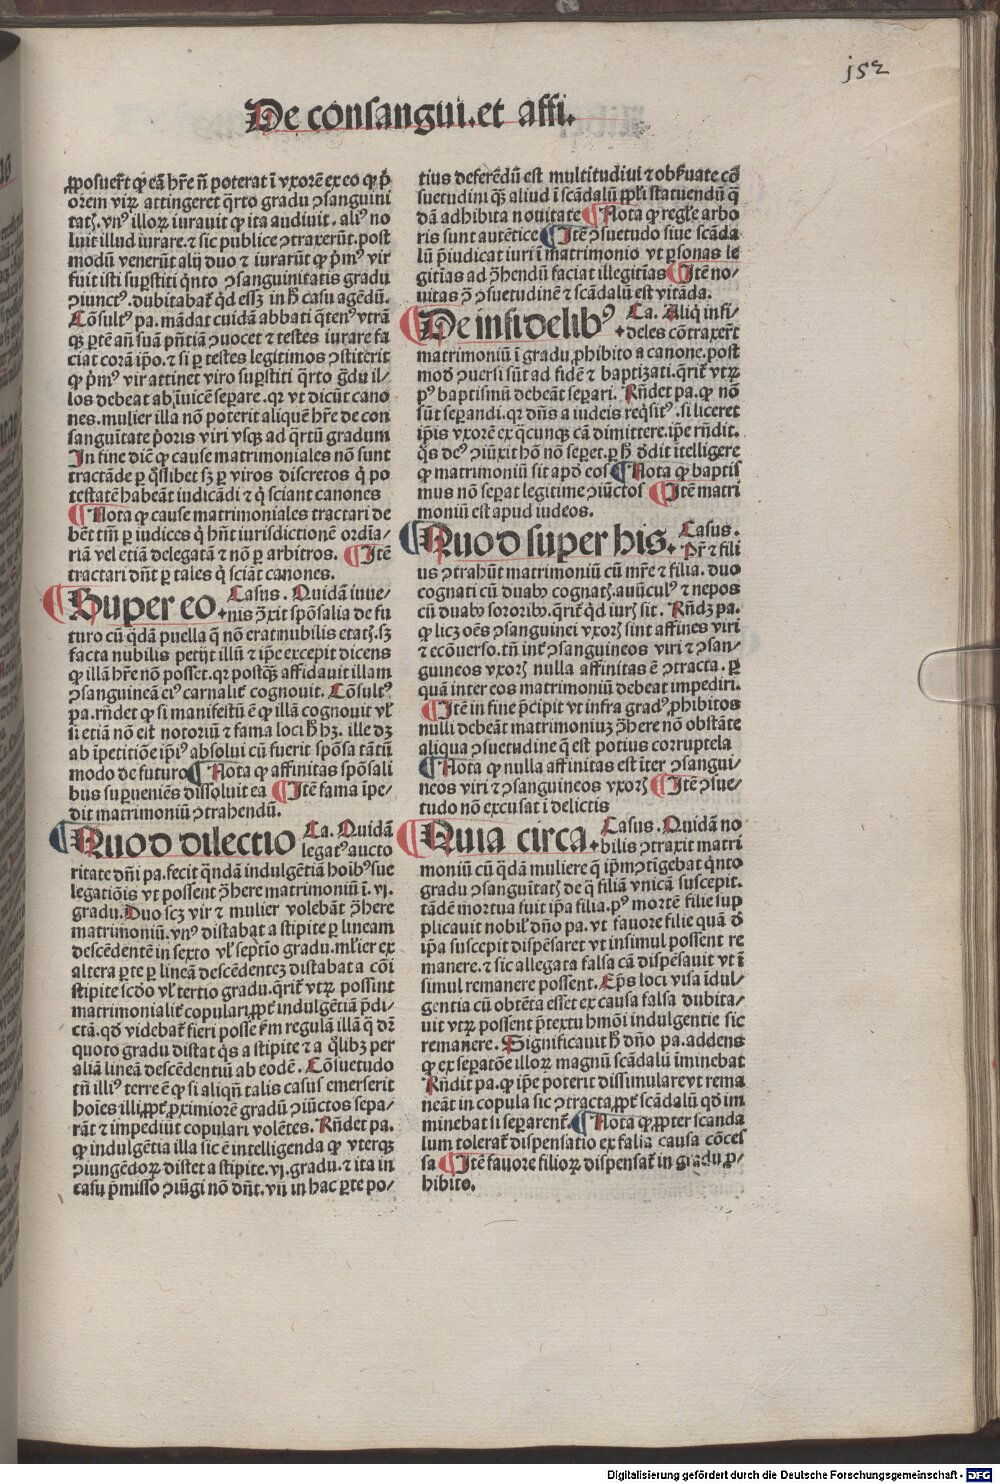 j52
De consangui. et affi.
ꝓposuer̄t ꝙ eā hr̄e nō poterat ī vxorē ex eo ꝙ p̄
orem virū attingeret q̄rto gradu ꝯsanguini
tatꝭ. vnꝰ illoꝝ iurauit ꝙ ita audiuit. aliꝰ no
luit illud iurare. ⁊ sic publice ꝯtraxerūt. post
modū venerūt alij duo ⁊ iurarūt ꝙ p̄mꝰ vir
fuit isti suꝑstiti q̄nto ꝯsanguinitatis gradu
ꝯiunctꝰ. dubitabat̄ qͥd essꝫ in h̄ casu agēdū.
Cōsultꝰ pa. mādat cuidā abbati qͥtenꝰ vtrā
qꝫ ꝑtē an̄ suā pn̄tiā ꝯuocet ⁊ testes iurare fa
ciat corā ip̄o. ⁊ si ꝑ testes legitimos ꝯstiterit
ꝙ p̄mꝰ vir attinet viro suꝑstiti q̄rto gͣdu il/
los debeat abīuicē seꝑare. qꝛ vt dicūt cano
nes. mulier illa nō poterit aliquē hr̄e de con
sanguītate p̄oris viri vsqꝫ ad q̄rtū gradum
In fine diē ꝙ cause matrimoniales nō sunt
tractāde ꝑ qͦslibet sꝫ ꝑ viros discretos qͥ po
testatē habeāt iudicādi ⁊ qͥ sciant canones
¶ Nota ꝙ cause matrimoniales tractari de
bēt tm̄ ꝑ iudices qͥ hn̄t iurisdictionē ordīa/
riā vel etiā delegatā ⁊ nō ꝑ arbitros. ¶ Itē
tractari dn̄t ꝑ tales qͥ sciāt canones.
¶ Super eo. Casus. Quidā iuue/
nis ꝯ̄xit spōsalia de fu
turo cū qͣdā puella q̄ nō erat nubilis etatꝭ. sꝫ
facta nubilis petijt illū ⁊ ip̄e excepit dicens
ꝙ illā hr̄e nō posset. qꝛ postqͣꝫ affidauit illam
ꝯsanguineā eiꝰ carnalit̄ cognouit. Cōsultꝰ
pa. rn̄det ꝙ si manifestū ē ꝙ illā cognouit vl̓
si etiā nō est notoriū ⁊ fama loci h̄ hꝫ. ille dꝫ
ab īpetitiōe ip̄iꝰ absolui cū fuerit spōsa tātū
modo de futuro ¶ Nota ꝙ affinitas spōsali
bus suꝑueniēs dissoluit ea ¶ Itē fama īpe/
dit matrimoniū ꝯtrahendū.
¶ Quod dilectio Ca. Quidā
legatꝰ aucto
ritate dn̄i pa. fecit qͣndā indulgētiā hoībꝰ sue
legatiōis vt possent ꝯ̄here matrimoniū ī. vj.
gradu. Duo scꝫ vir ⁊ mulier volebāt ꝯ̄here
matrimoniū. vnꝰ distabat a stipite ꝑ lineam
descēdentē in sexto vl̓ septīo gradu. ml̓ier ex
altera ꝑte ꝑ lineā descēdentez distabat a cōi
stipite scd̄o vl̓ tertio gradu. q̄rit̄ vtꝝ possint
matrimonialit̄ copulari ꝓpt̄ indulgētiā p̄di/
ctā. qd̄ videbat̄ fieri posse km̄ regulā illā q̄ dr̄
quoto gradu distat qͥs a stipite ⁊ a qͦlibꝫ per
aliā lineā descēdentiū ab eodē. Cōsuetudo
tn̄ illiꝰ terre ē ꝙ si aliqn̄ talis casus emerserit
hoīes illi ꝓpt̄ ꝓximiorē gradū ꝯiūctos sepa/
rāt ⁊ impediūt copulari volētes. Rn̄det pa.
ꝙ indulgētia illa sic ē intelligenda ꝙ vterqꝫ
ꝯiungēdoꝝ distet a stipite. vj. gradu. ⁊ ita in
casu p̄misso ꝯiūgi nō dn̄t. vn̄ in hac ꝑte po/
tius deferēdū est multitudini ⁊ obẜuate cō
suetudini qͣꝫ aliud ī scādalū ppl̓i statuendū q̄
dā adhibita nouitate ¶ Nota ꝙ regl̓e arbo
ris sunt autētice ¶ Itē ꝯsuetudo siue scāda
lū p̄iudicat iuri ī matrimonio vt ꝑsonas le
gitīas ad ꝯ̄hendū faciat illegitīas ¶ Itē no/
uitas ꝯ̄ ꝯsuetudinē ⁊ scādalū est vitāda.
¶ De infidelibꝰ Ca. Aliqͥ infi/
deles cōtraxer̄t
matrimoniū ī gradu ꝓhibito a canone. post
mod̄ ꝯuersi sūt ad fidē ⁊ baptizati. q̄rit̄ vtꝝ
pꝰ baptismū debeāt seꝑari. Rn̄det pa. ꝙ nō
sūt seꝑandi. qꝛ dn̄s a iudeis reqͥsitꝰ. si liceret
ip̄is vxorē ex qͣcunqꝫ cā dimittere. ip̄e rn̄dit.
qͦs deꝰ ꝯiūxit hō nō seꝑet. ꝑ h̄ ōdit ītelligere
ꝙ matrimoniū sit apd̄ eos ¶ Nota ꝙ baptis
mus nō seꝑat legitime ꝯiūctos ¶ Itē matri
moniū est apud iudeos.
¶ Quod super his. Casus.
Pr̄ ⁊ fili
us ꝯtrahūt matrimoniū cū mr̄e ⁊ filia. duo
cognati cū duabꝰ cognatꝭ. auūculꝰ ⁊ nepos
cū duabꝰ sororibꝰ. q̄rit̄ qͥd iurꝭ sit. Rn̄dꝫ pa.
ꝙ licꝫ oēs ꝯsanguinei vxorꝭ sint affines viri
⁊ ecōuerso. tn̄ int̄ ꝯsanguineos viri ⁊ ꝯsan/
guineos vxorꝭ nulla affinitas ē ꝯtracta. ꝑ
quā inter eos matrimoniū debeat impediri.
¶ Itē in fine p̄cipit vt infra gradꝰ ꝓhibitos
nulli debeāt matrimoniuꝫ ꝯ̄here nō obstāte
aliqua ꝯsuetudine q̄ est potius corruptela
¶ Nota ꝙ nulla affinitas est īter ꝯsangui/
neos viri ⁊ ꝯsanguineos vxorꝭ ¶ Itē ꝯsue/
tudo nō excusat ī delictis
¶ Quia circa. Casus. Quidā no
bilis ꝯtraxit matri
moniū cū qͣdā muliere q̄ ip̄m ꝯtīgebat qͥnto
gradu ꝯsanguītatꝭ de q̄ filiā vnicā suscepit.
tādē mortua fuit ip̄a filia. pꝰ mortē filie sup
plicauit nobil̓ dn̄o pa. vt fauore filie quā d̄
ip̄a suscepit dispēsaret vt insimul possent re
manere. ⁊ sic allegata falsa cā dispēsauit vt ī
simul remanere possent. Ep̄s loci visa īdul/
gentia cū obtēta esset ex causa falsa dubita/
uit vtꝝ possent p̄textu hmōi indulgentie sic
remanere. Significauit h̄ dn̄o pa. addens
ꝙ ex seꝑatōe illoꝝ magnū scādalū īminebat
Rn̄dit pa. ꝙ ip̄e poterit dissimulare vt rema
neāt in copula sic ꝯtracta ꝓpt̄ scādalū qd̄ im
minebat si seꝑarent̄. ¶ Nota ꝙ ꝓpter scanda
lum tolerat̄ dispensatio ex falsa causa cōces
sa ¶ Itē fauore filioꝝ dispensat̄ in gradu ꝓ/
hibito.
Digitalisierung gefördert durch die Deutsche Forschungsgemeinschaft - DFG